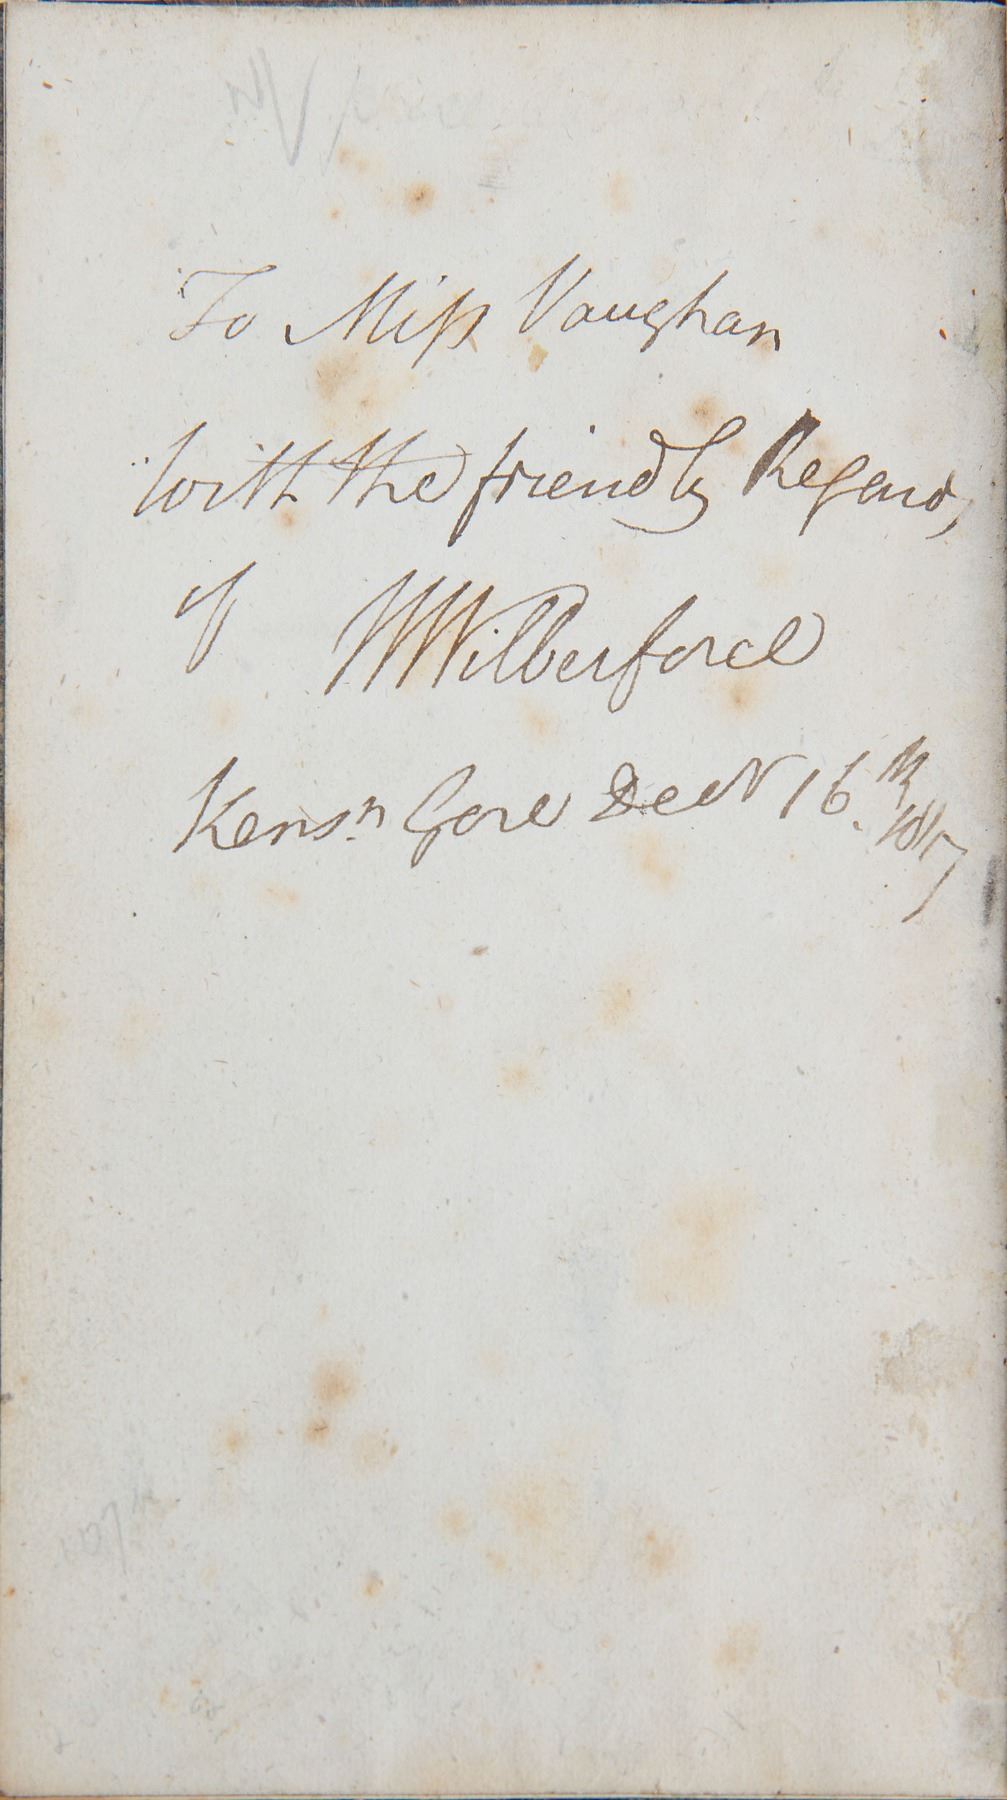 To Miss Vaughan
with the friendly Regards
of WWilberforce
Kensn. Gore Decr 16.th 1817